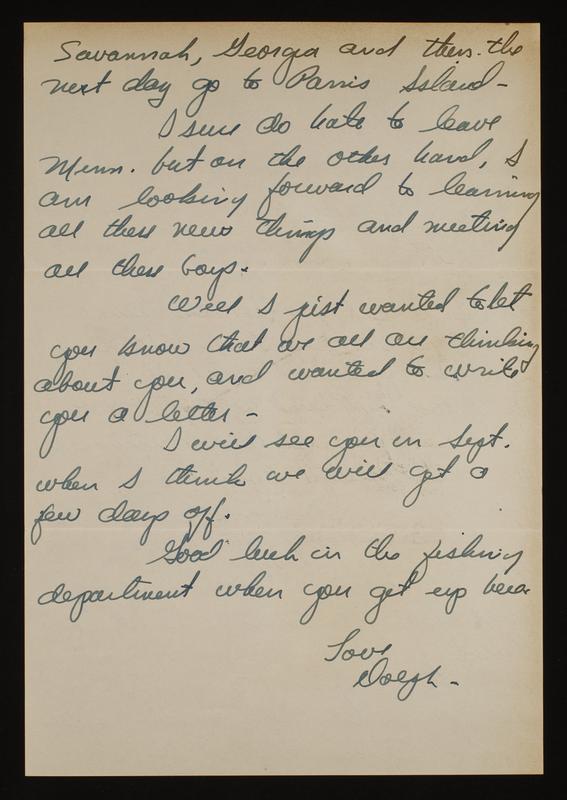 Savannah, Georgia and then the
next day go to Parris Island -
I sure do hate to leave
Minn. but on the other hand, I
am looking forward to learning
all these new things and meeting
all these boys.
Well I just wanted to let
you know that we all are thinking
about you, and wanted to write
you a letter -
I will see you in Sept.
when I think we will get a
few days off.
Good luck in the fishing
department when you get up here
Love